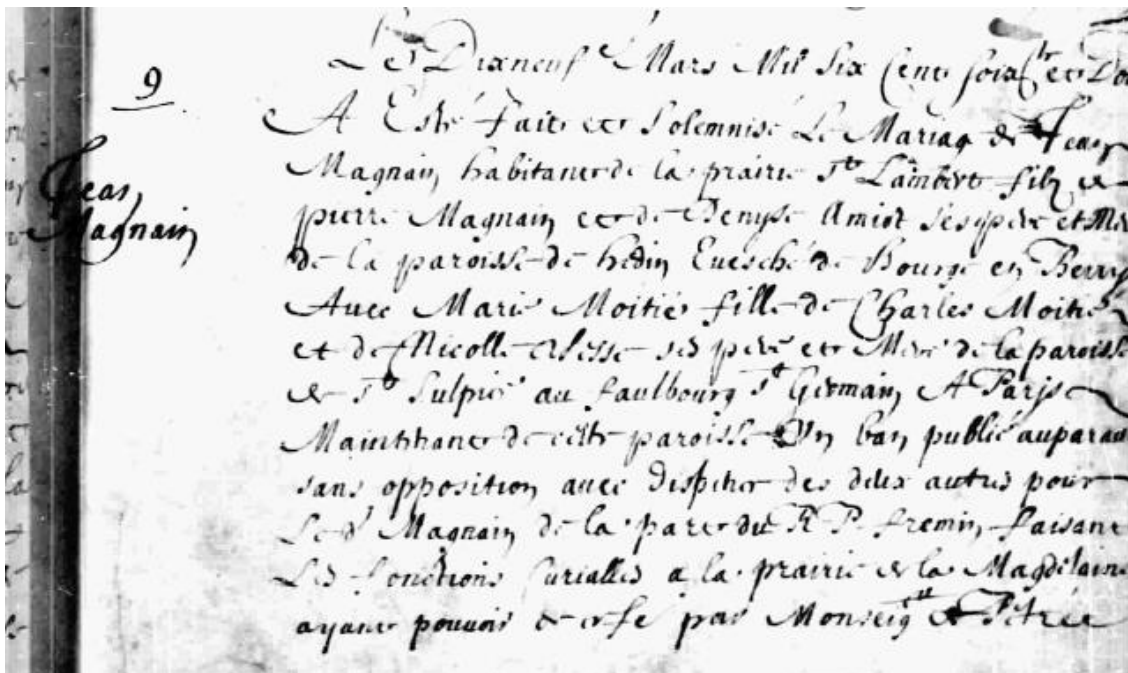 9
Jean
Magnain
Le Dixneuf Mars Mil Six Cent soixte et Do
A Esté fait et Solemnisé Le Mariag de Jean
Magnain habitant de la prairie St Lambert filz de
pierre Magnain et de Denyse Amiot ses pere et Mer
de la paroisse de hedin Euesché de Bourge en Berry
Auec Marie Moitié fille de Charles Moitié
et de Nicolle ses pere et Mere de la paroisse
de St Sulpice au faulbourg St Germain A Paris
Maintenant de cette paroisse Un ban publié auparau
sans opposition auec dispense des deux autres pour
Le dt Magnain de la part du R P fremin faisant
Les fonctions Curialles a la prairie de la Magdelaine
ayant pouuoir de ce par Monseigr de Petrée